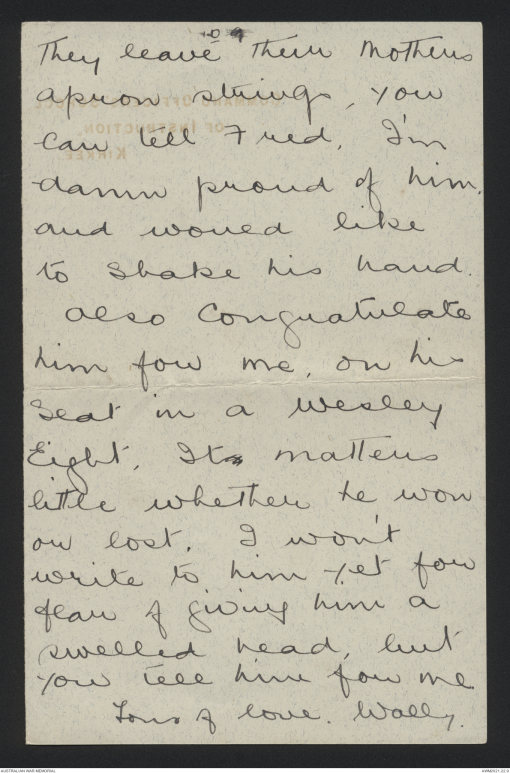 9
They leave their Mothers
apron strings, you
can tell Fred, I'm
damn proud of him,
and woued like
to shake his hand.
also Congratulate
him for me, on his
seat in a Wesley
Eight. It matters
little whether he won
or lost. I won't
write to him yet for
fear of giving him a
swelled head, but
you tell him for me
Tons of love. Wally.
COMMAND
OF INSTRUCTION,
KIRKEE.
AUSTRALIAN WAR MEMORIAL